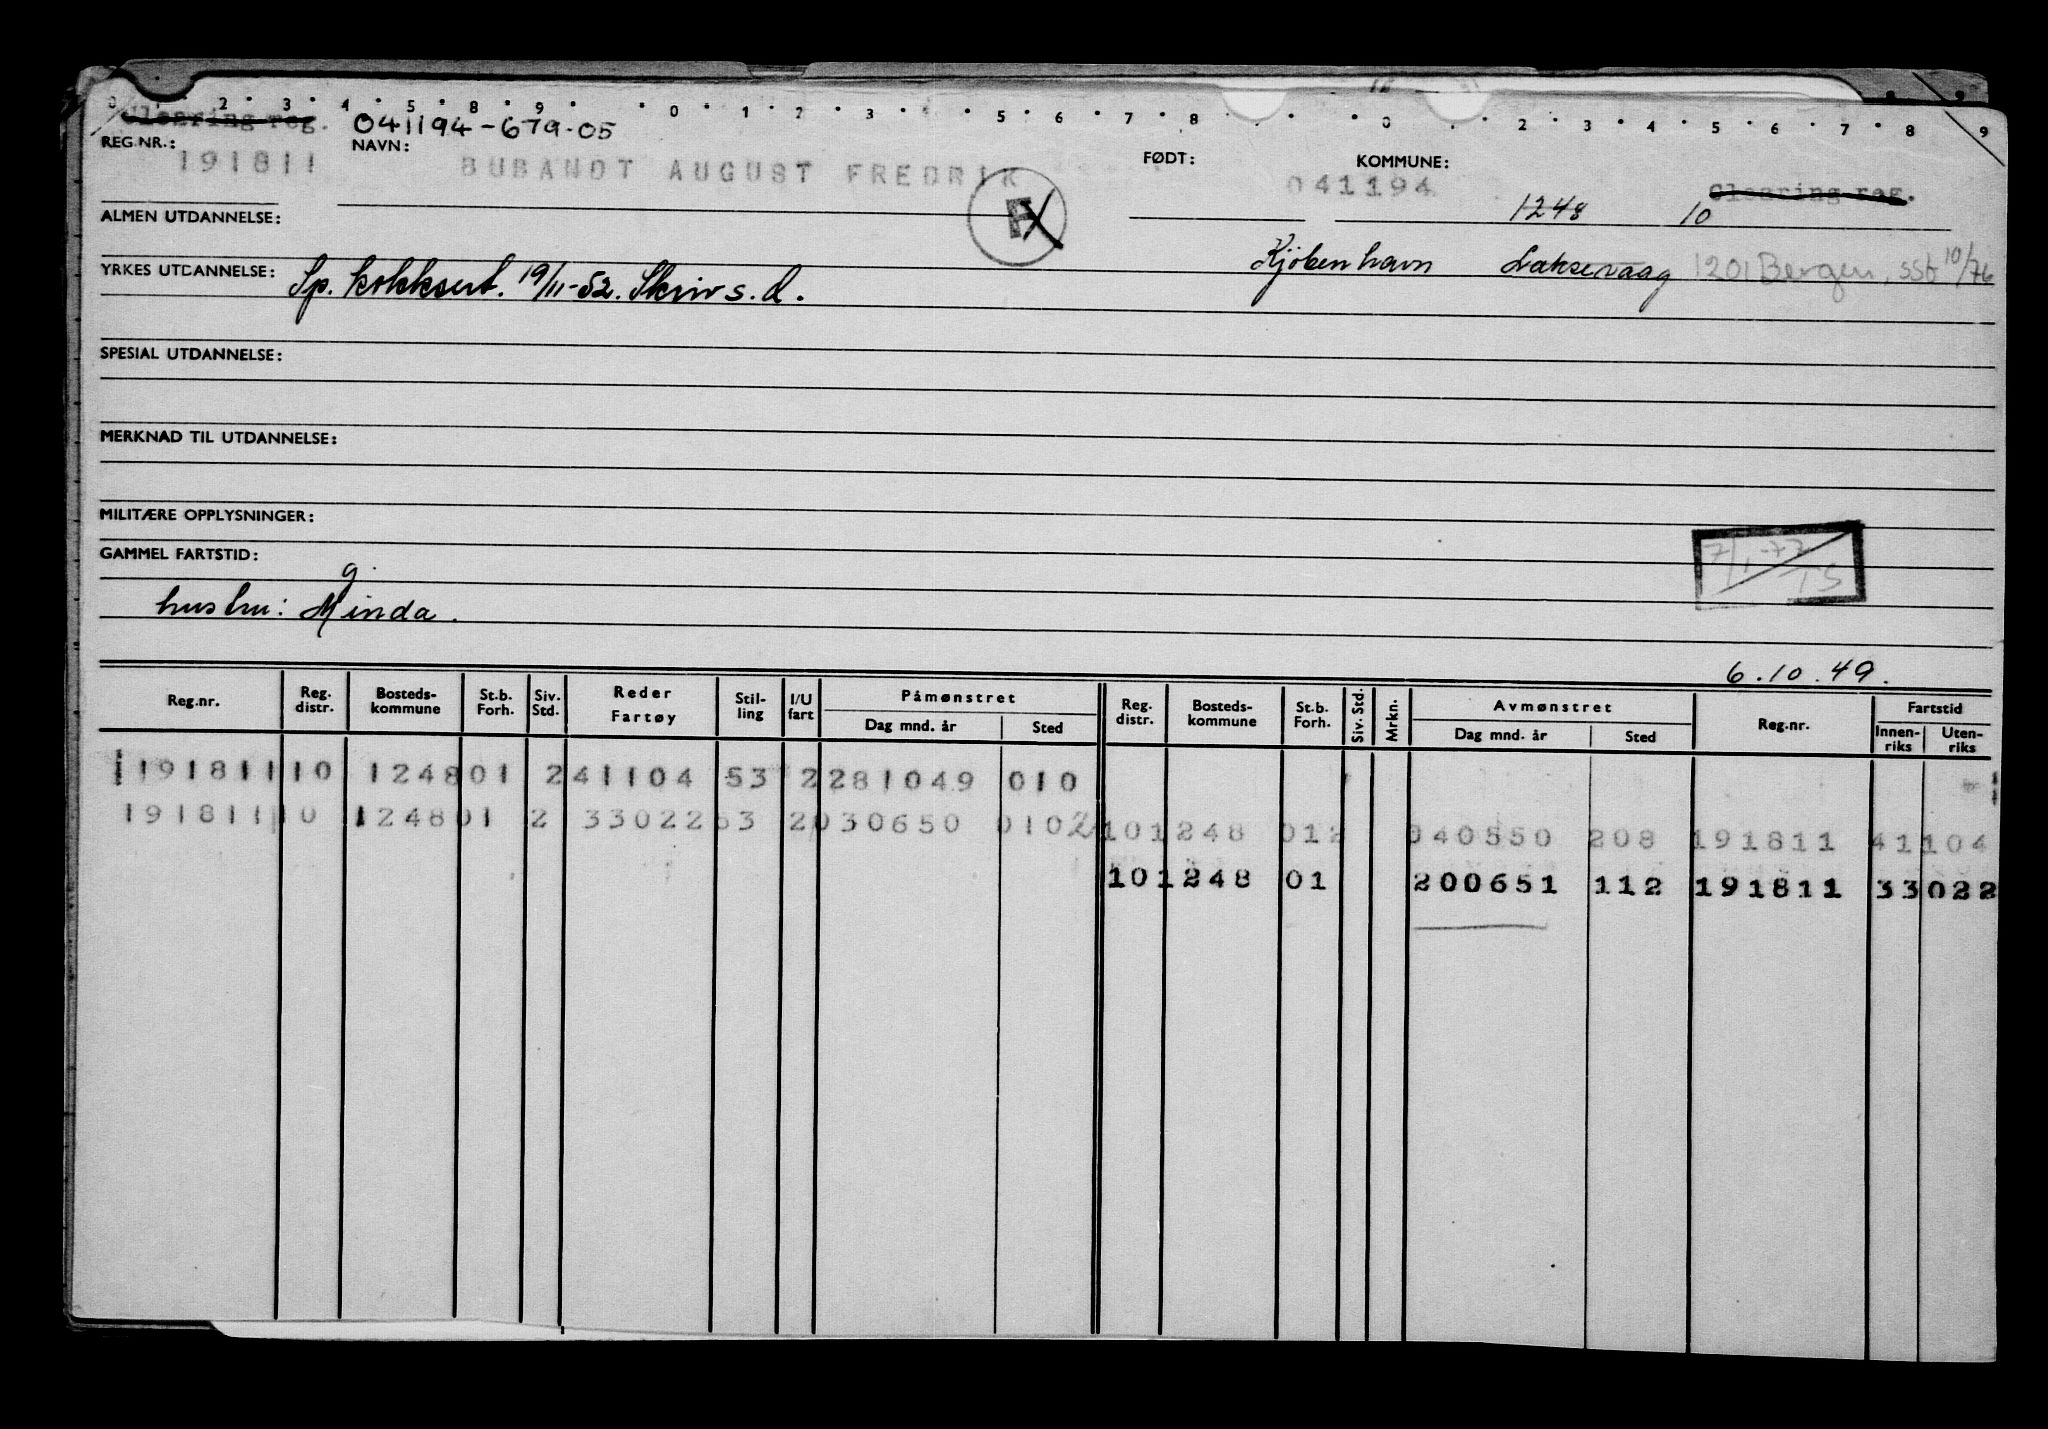 0 2 3 4 5 8 9 0 1 2 3 4 5 6 7 8 0 2 3 4 5 6 7 8 9
Clearing reg. 041194-679-05
REG.NR.: NAVN: FØDT: KOMMUNE:
191811 BUBANDT AUGUST FREDRIK 041194 Clearing reg.
ALMEN UTDANNELSE: F 1248 10
Kjöbenhavn Laksevaag 1201 Bergen, sst 10/76
YRKES UTDANNELSE: Sp. kokksert. 19/11-52. Skriv s.d.
SPESIAL UTDANNELSE:
MERKNAD TIL UTDANNELSE:
MILITÆRE OPPLYSNINGER:
GAMMEL FARTSTID: 7/1-77 TS
g.
hustru: Minda.
6.10.49.
Reg.nr. Reg. distr. Bosteds- kommune St.b. Forh. Siv. Std. Reder Fartøy Stil- ling I/U fart Påmønstret Dag mnd. år Sted Reg. distr. Bosteds- kommune St.b. Forh. Siv. Std. Mrkn. Avmønstret Dag mnd. år Sted Reg.nr. Fartstid Innen- riks Uten- riks
191811 10 1248 01 2 41104 53 2 281049 010
191811 10 1248 01 2 33022 63 2 030650 0102 10 1248 012 040550 208 191811 41104
10 1248 01 200651 112 191811 33022